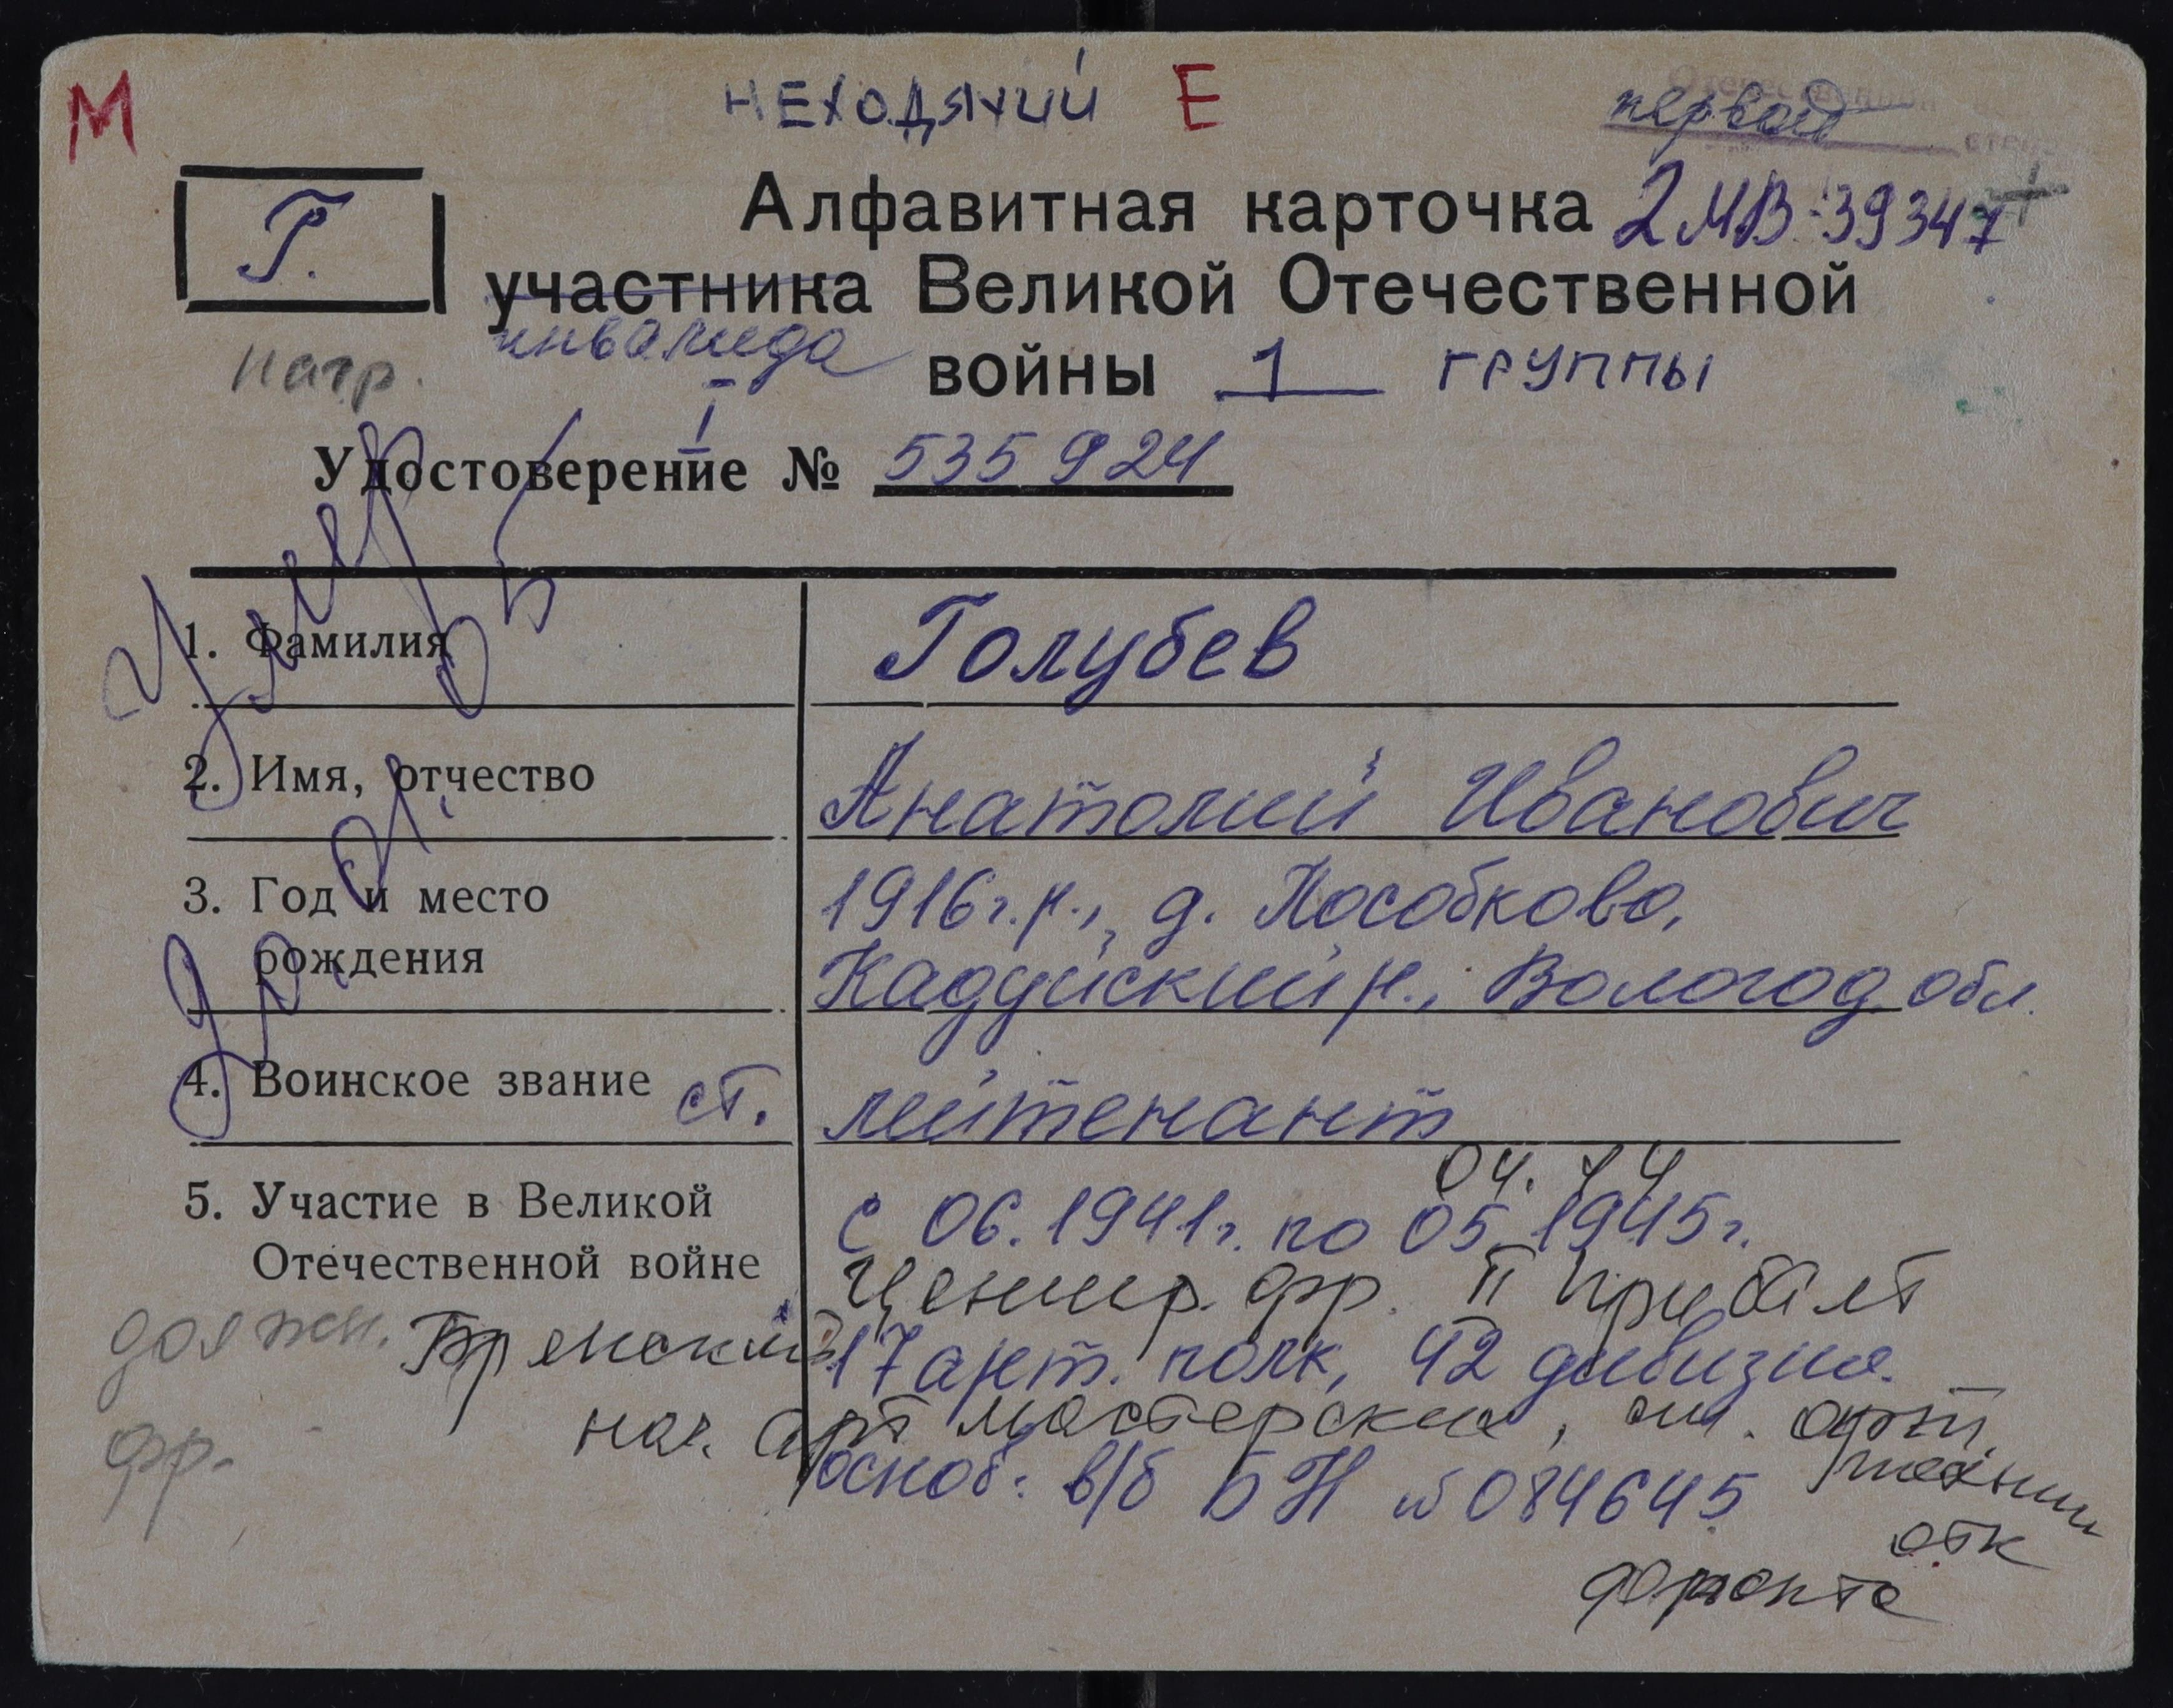 М НЕХОДЯЧИЙ Е первой
Г.
Алфавитная карточка 2МВ-39347 +
участника Великой Отечественной
нагр. инвалида войны 1 группы
I
Удостоверение № 535 924
Умер
1. Фамилия Голубев
2. Имя, отчество Анатолий Иванович
3. Год и место 1916 г.р., д.
рождения Кадуйский р., Вологод. обл.
4. Воинское звание ст. лейтенант
04. 44
5. Участие в Великой с 06.1941г. по 05.1945г.
Отечественной войне Центр. фр. II Прибалт
должн. Брянский 17 арт. полк, 42 дивизия.
фр. нач. арт мастерских, ст. арт.
основ: в/б БН №084645 техник
отк
фронта